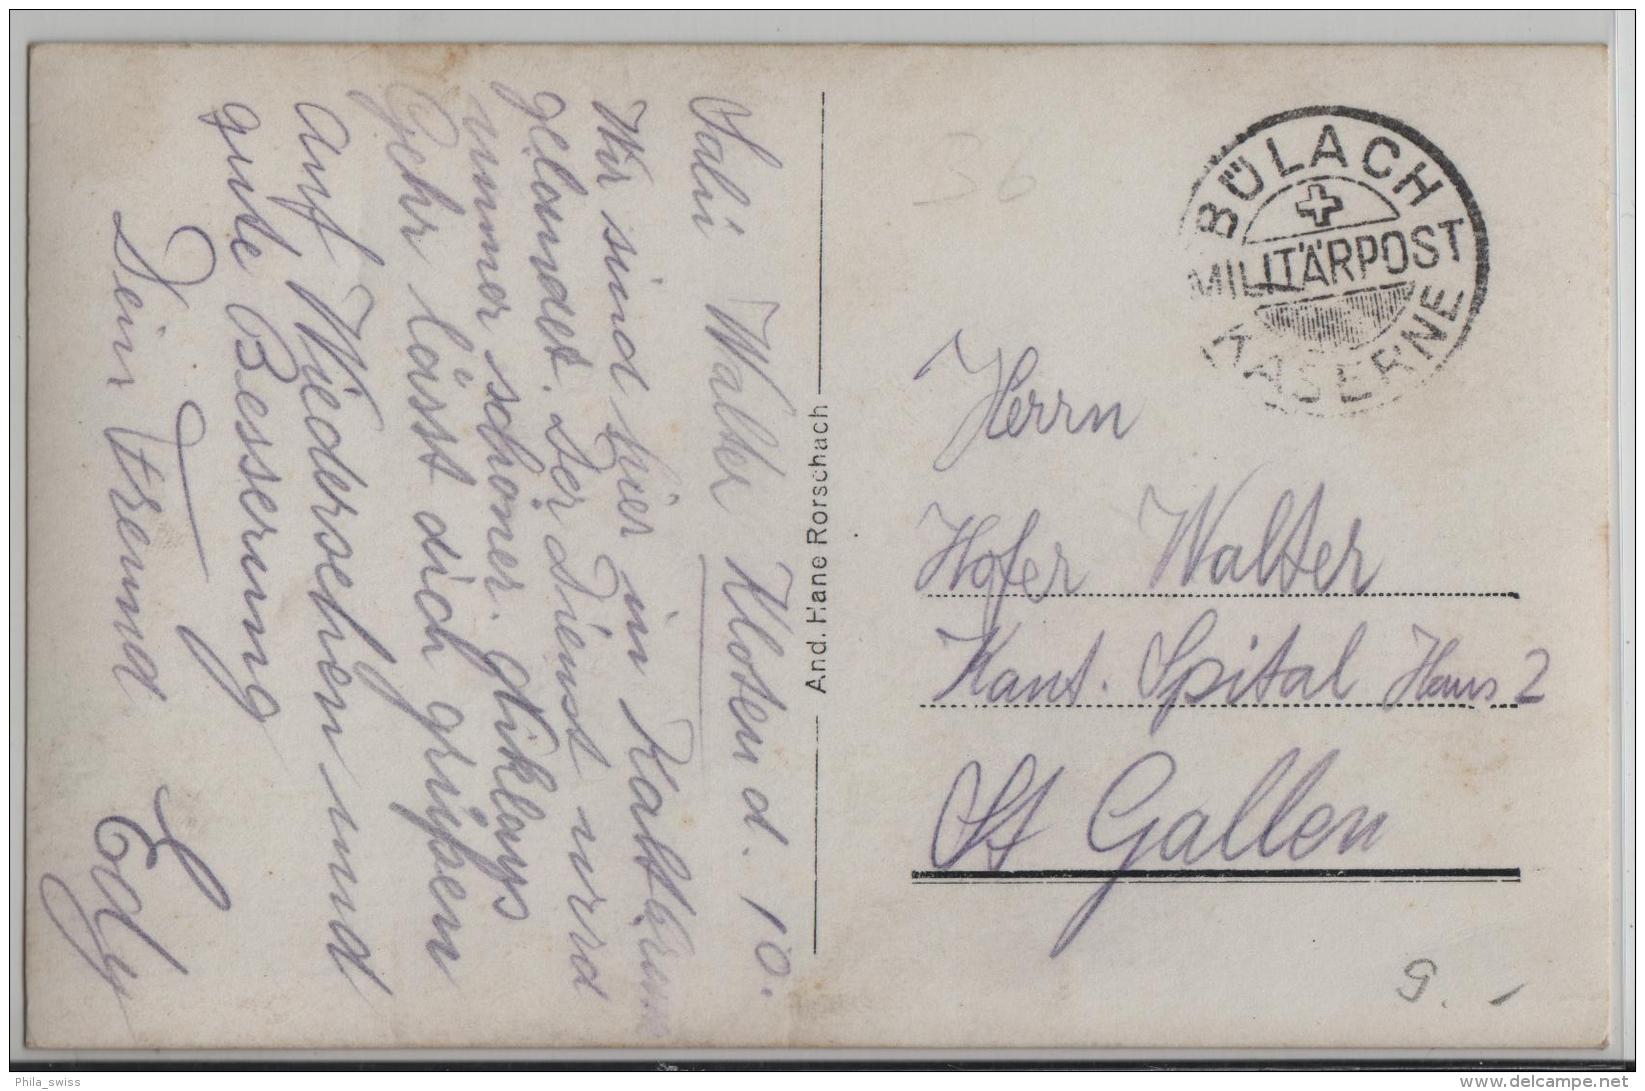 Sali Walter Kloten d. 10.
Wir sind hier in Kaltbrunn
gelandet. Der Dienst wird
immer schöner.
Gehr lässt dich grüßen
Auf Wiedersehen und
gute Besserung
Dein Freund
Edy
And. Hane Rorschach
36
BÜLACH
MILITÄRPOST
KASERNE
Herrn
Hofer Walter
Kant. Spital Haus 2
St Gallen
9.-
Phila_swiss
delcampe.net